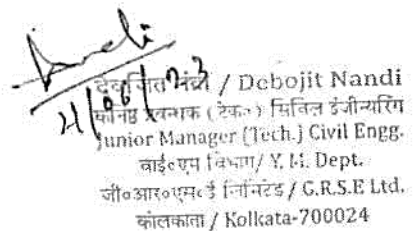 Nandi
21/06/23
देबोजित नंदी / Debojit Nandi
कनिष्ठ प्रबन्धक (टेक.) सिविल इंजीन्यरिंग
Junior Manager (Tech.) Civil Engg.
वाई॰एम विभाग/ Y. M. Dept.
जी॰आर॰एस॰ई लिमिटेड / G.R.S.E Ltd.
कोलकाता / Kolkata-700024